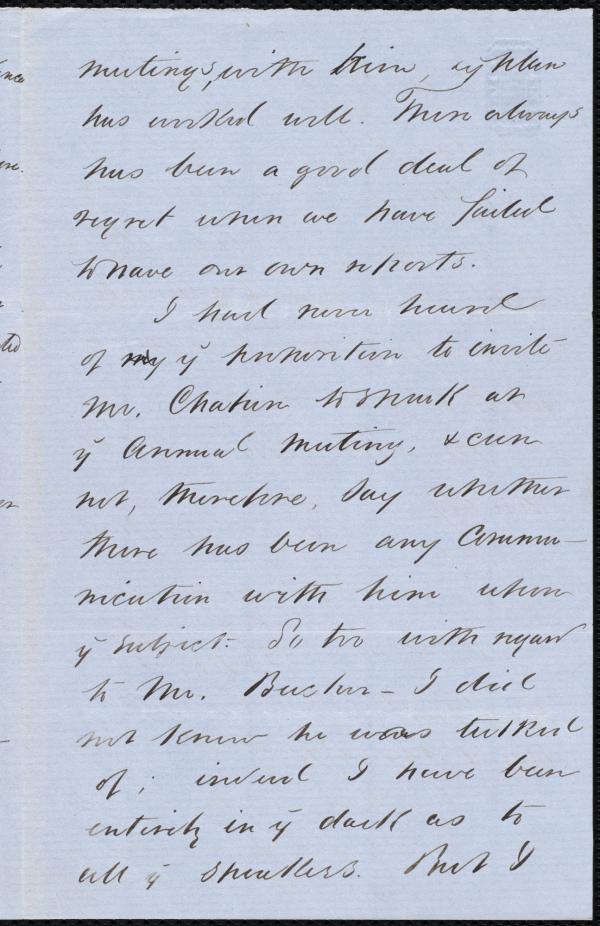 meetings, with him, ye plan
has worked well. There always
has been a good deal of
regret when we have failed
to have our own reports.
I had never heard
of my ye proposition to invite
Mr. Chapin to speak at
ye Annual Meeting, & can
not, therefore, say whether
there has been any Commu-
nication with him upon
ye subject. So too with regard
to Mr. Beecher - I did
not know he was talked
of; indeed I have been
entirely in ye dark as to
all ye speakers. But I